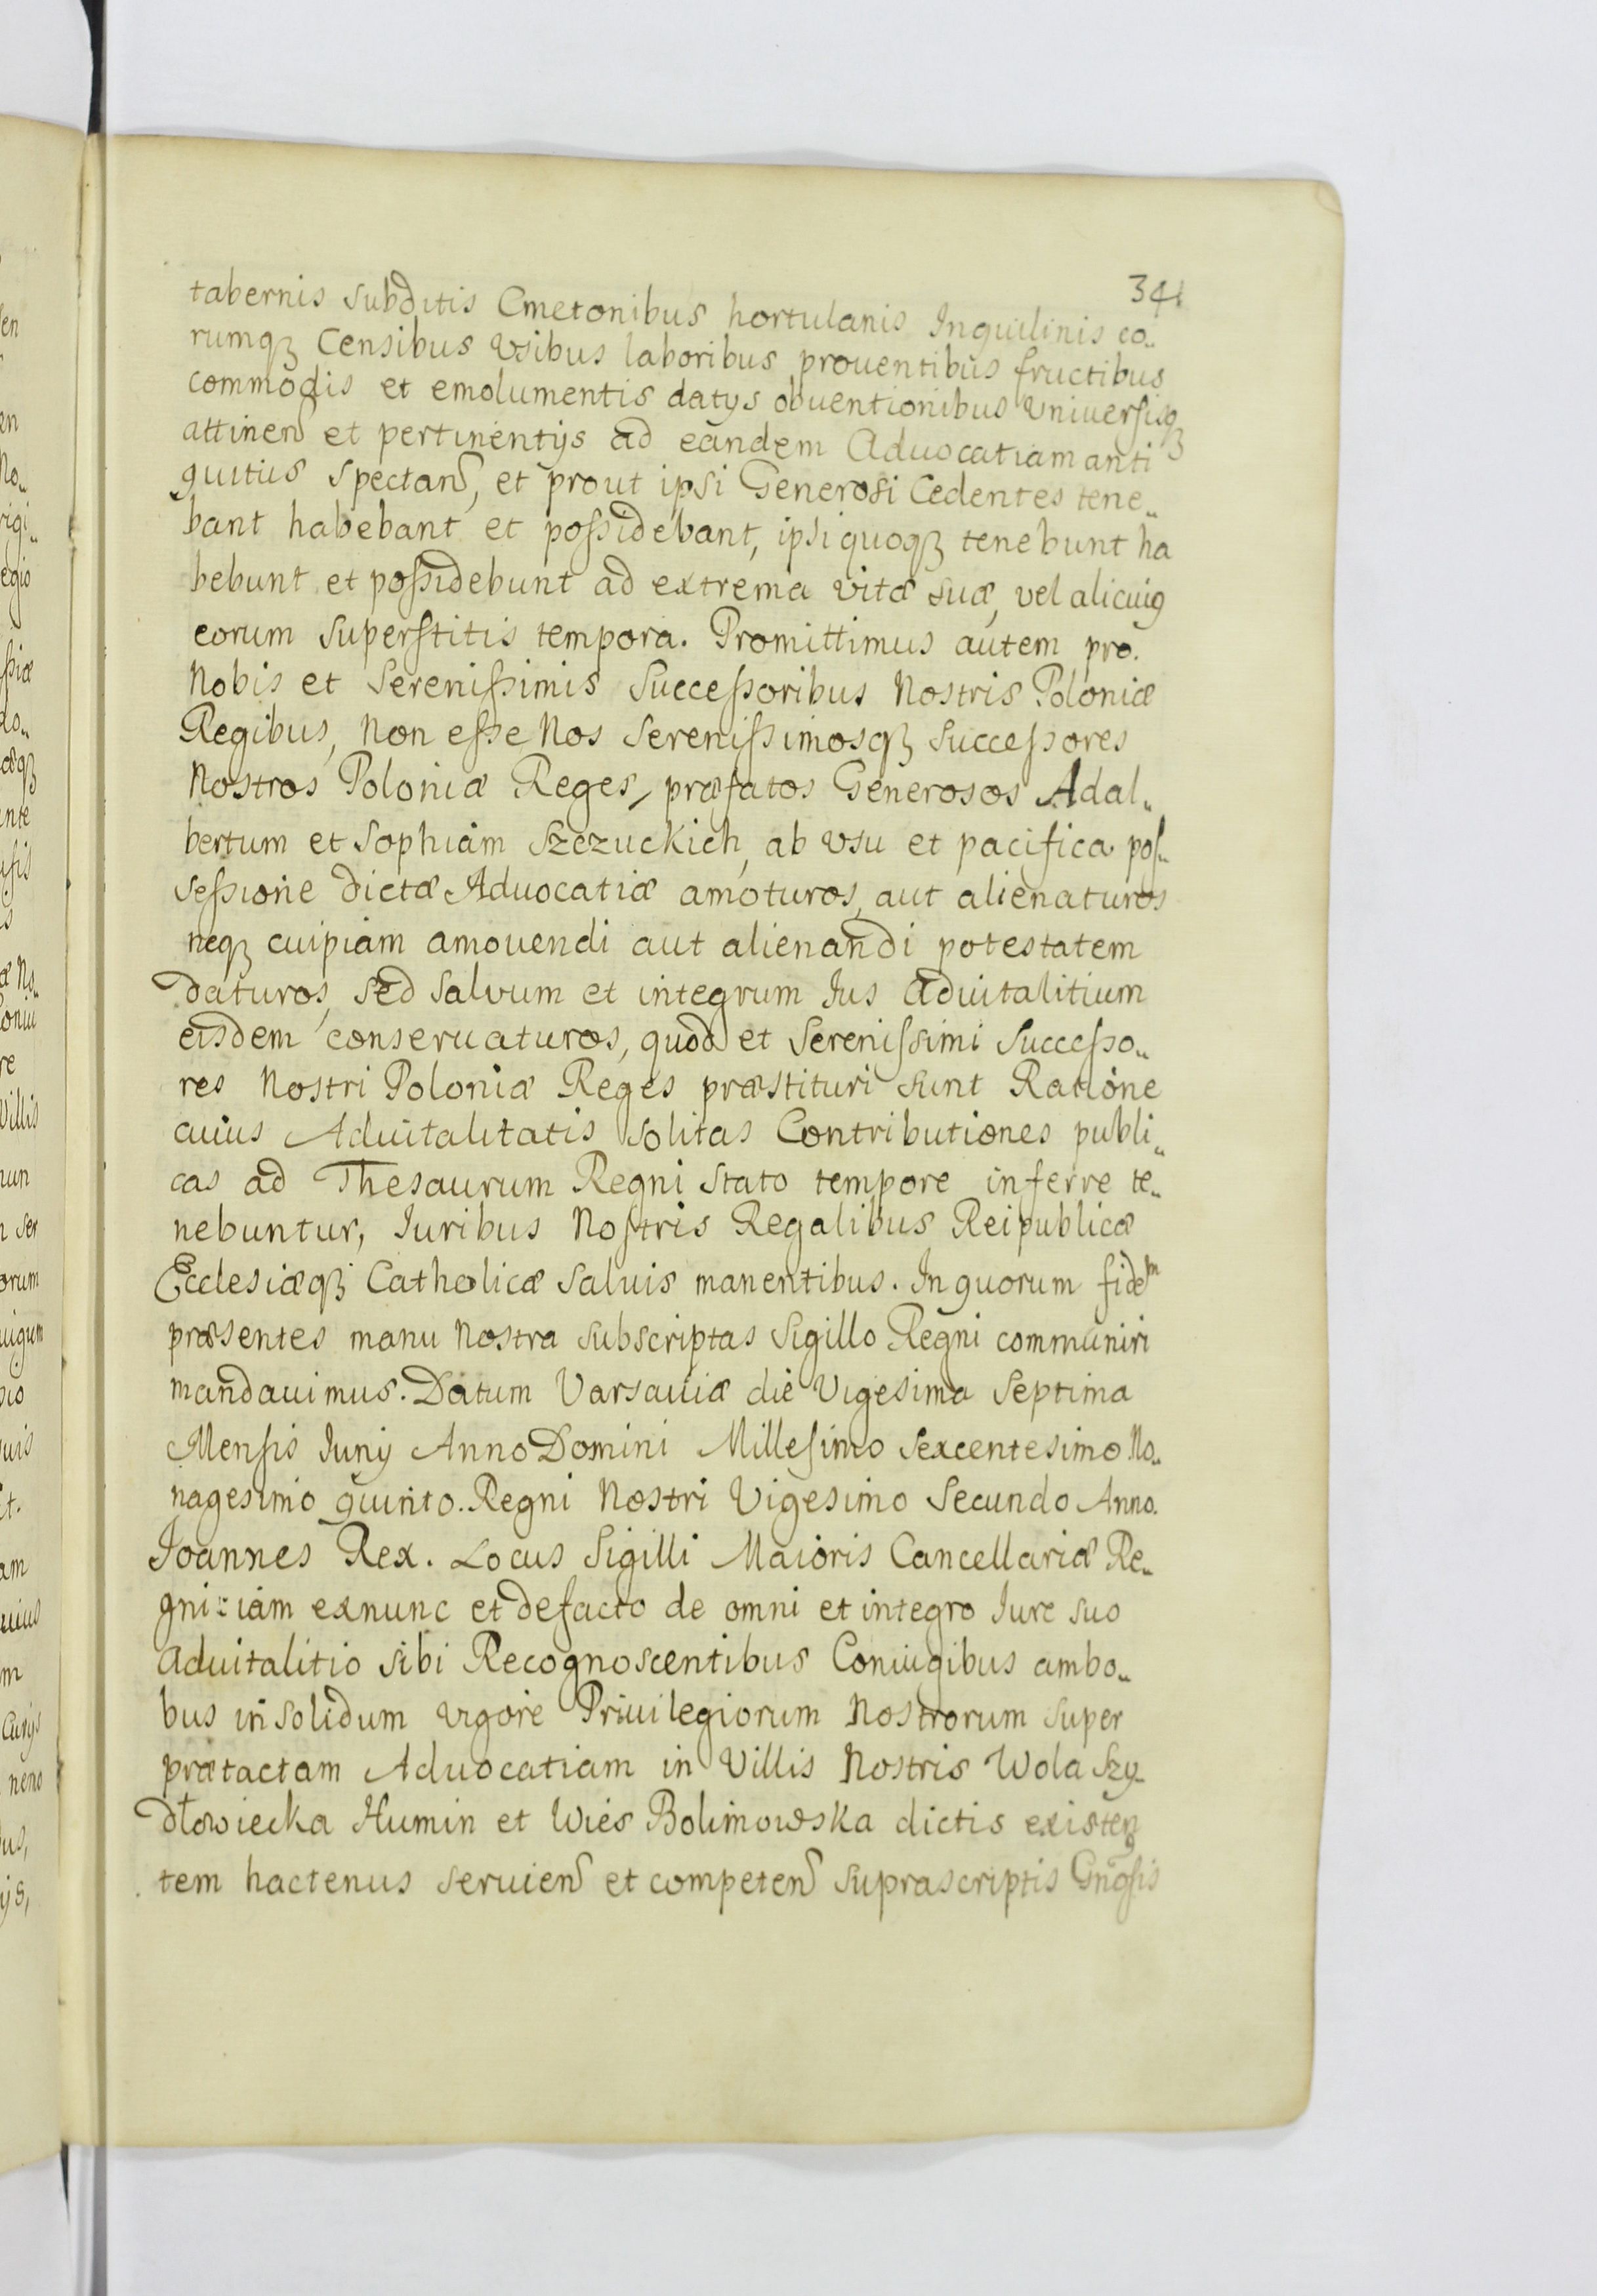 341
tabernis subditis Cmetonibus hortulanis Inquilinis eo„
rumqꝫ Censibus Vsibus laboribus prouentibus fructibus
commodis et emolumentis datys obuentionibus Vniuersisqꝫ
attinen et pertinentys ad eandem Aduocatiam anti
quitus spectan, et prout ipsi Generosi Cedentes tene„
bant habebant et possidebant, ipsi quoqꝫ tenebunt ha
bebunt et possidebunt ad extrema vitæ suæ, vel alicuiꝰ
eorum superstitis tempora. Promittimus autem pro.
Nobis et Serenissimis Successoribus Nostris Poloniæ
Regibus, Non esse Nos Serenissimosqꝫ Successores
Nostros Poloniæ Reges, præfatos Generosos Adal„
bertum et Sophiam Szczuckich, ab vsu et pacifica pos„
sessione dictæ Aduocatiæ amoturos, aut alienaturos
neqꝫ cuipiam amouendi aut alienandi potestatem
daturos, sed salvum et integrum Ius Aduitalitium
eisdem conseruaturos, quod et Serenissimi Successo„
res Nostri Poloniæ Reges præstituri sunt Ratione
cuius Aduitalitatis solitas Contributiones publi„
cas ad Thesaurum Regni stato tempore inferre te„
nebuntur, Iuribus Nostris Regalibus Reipublicæ
Ecclesiæqꝫ Catholicæ saluis manentibus. In quorum fidem
præsentes manu Nostra subscriptas Sigillo Regni communiri
mandauimus. Datum Varsauiæ die Vigesima Septima
Mensis Iuny Anno Domini Millesimo Sexcentesimo No„
nagesimo quinto. Regni Nostri Vigesimo Secundo Anno.
Ioannes Rex. Locus Sigilli Maioris Cancellariæ Re„
gni: iam exnunc et defacto de omni et integro Iure suo
aduitalitio sibi Recognoscentibus Coniugibus ambo„
bus in solidum vigore Priuilegiorum Nostrorum super
prætactam Aduocatiam in Villis Nostris Wola Szy„
dłowiecka Humin et Wies Bolimowska dictis existen
tem hactenus seruien et competen suprascriptis Gnosis